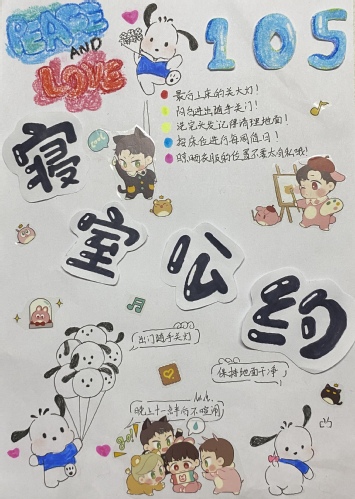 PEACE
AND
LOVE
105
最后上床的关大灯！
阳台进出随手关门！
洗完头发记得清理地面！
按床位进行每周值日！
晾晒衣服的位置不要太自私哦！
寝
室
公
约
出门随手关灯
保持地面干净
晚上十一点半后不喧闹